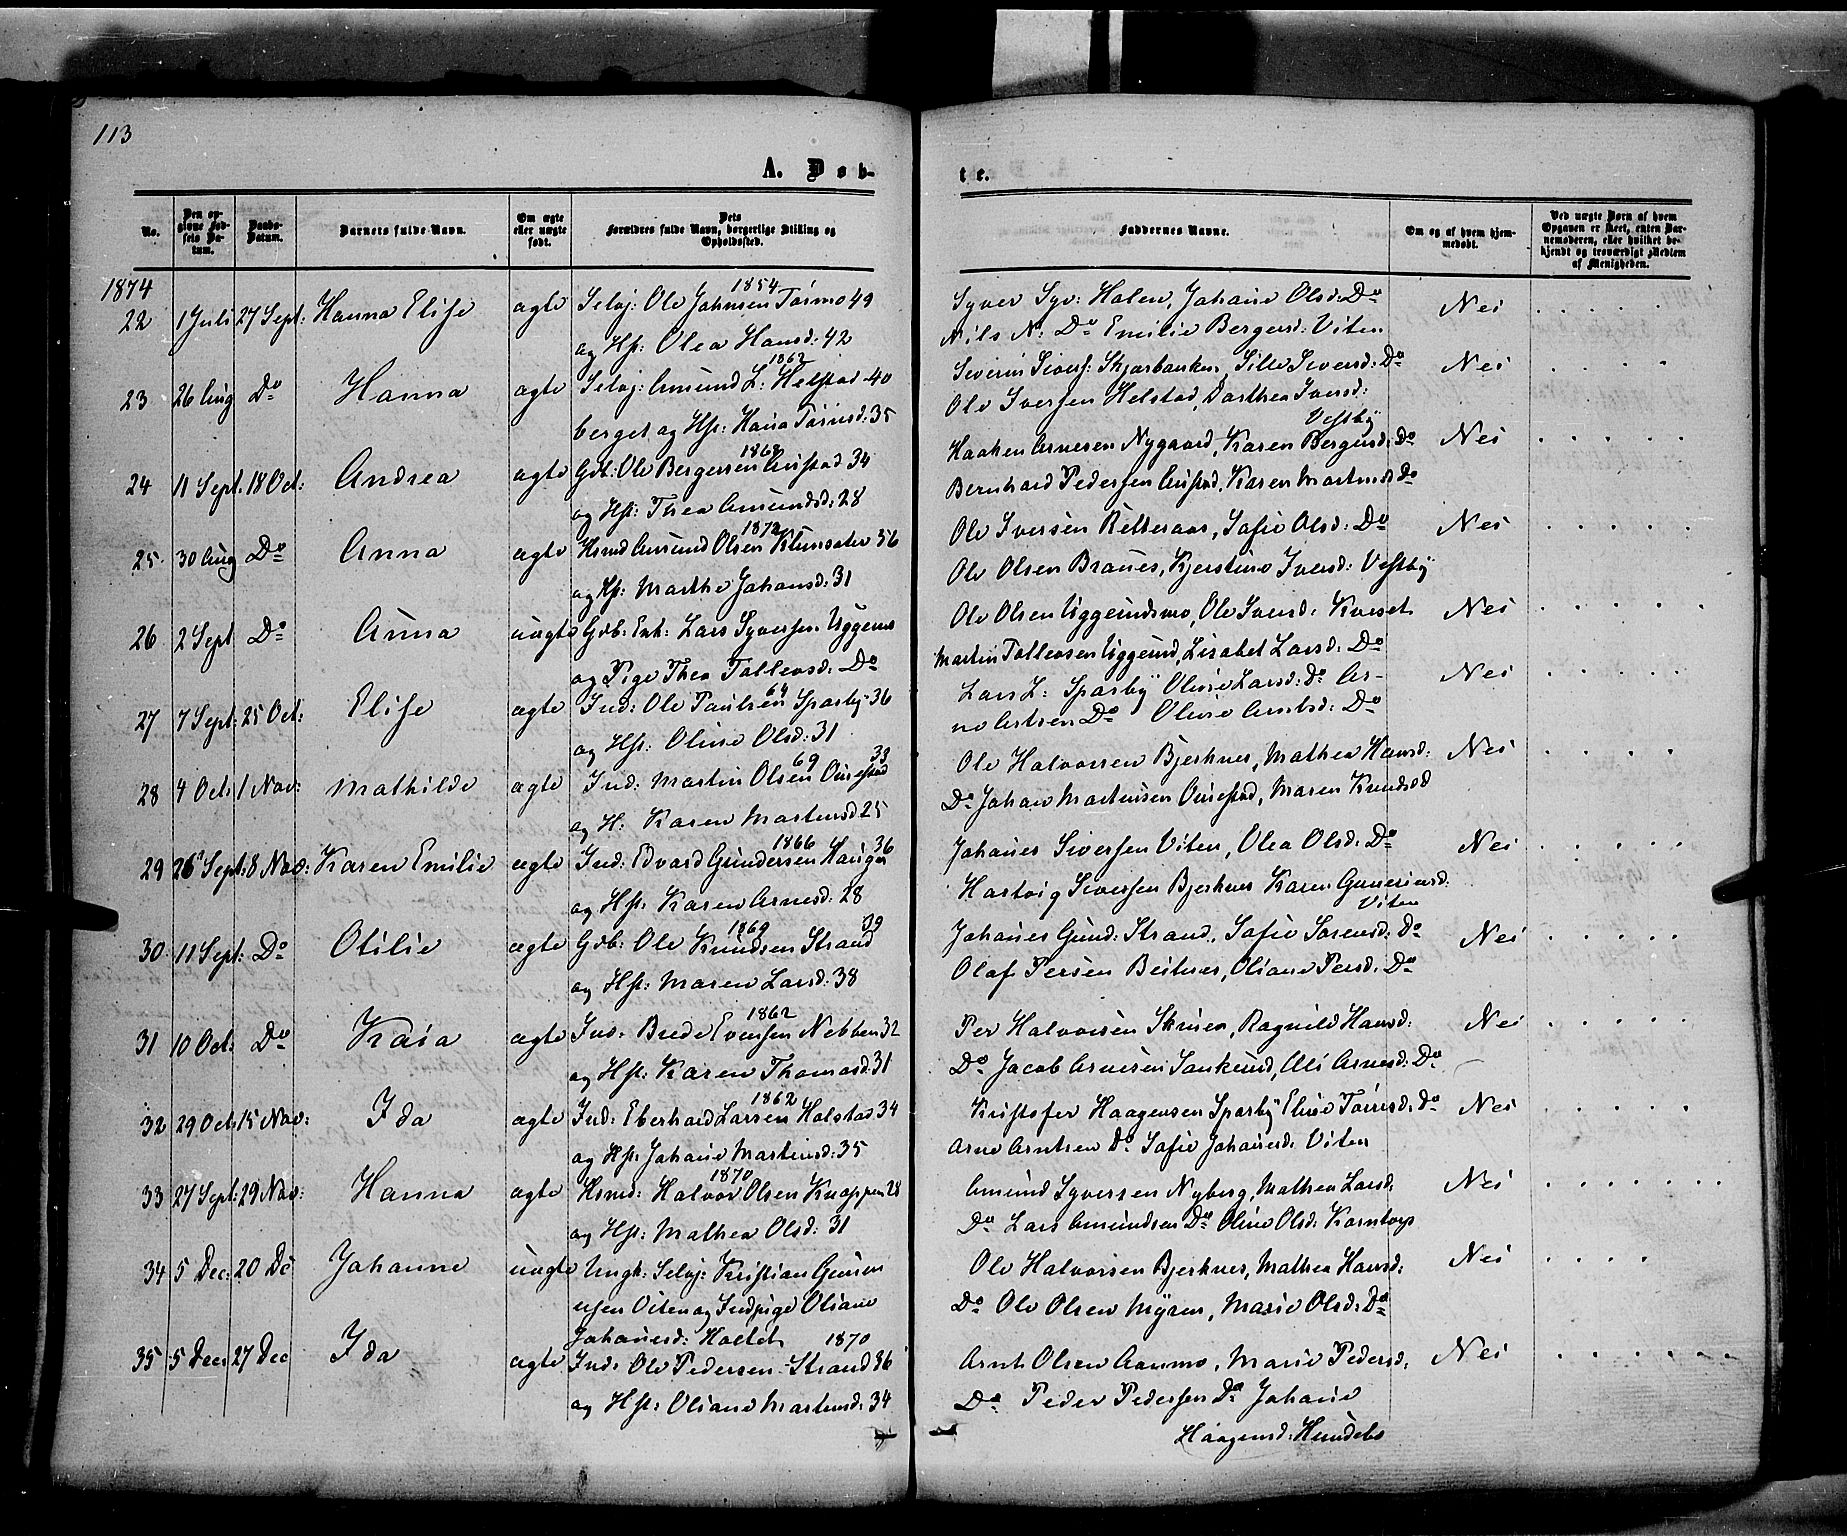 113
A. Døb-
te.
No.
Den opgivne Fødsels Datum.
Daabs-Datum.
Barnets fulde Navn.
Om ægte eller uægte født.
Dets Forældres fulde Navn, borgerlige Stilling og Opholdssted.
Faddernes Navne.
Om og af hvem hjemmedøbt.
Ved uægte Børn af hvem Opgaven er skeet, enten Barnemoderen, eller hvilket bekjendt og troværdigt Medlem af Menigheden.
1874
22 1 Juli 27 Sept: Hanna Elise ægte Selvj: Ole Johnsen Tórmo 49 1854
og Hst: Olea Hansd: 42
Syver Syv: Halen, Johane Olsd: Do Nei
Nils N: Do Emilie Bergersd: Viten
23 26 Aug Do Hanna ægte Selvj: Amund L: Helstad- 40 1862
berget og Hst: Hana Tórrisd: 35
Siverin Sivers: Skjærbanken, Sille Siversd: Do Nei
Ole Iversen Helstad, Dorthea Iversd: Vestby
24 11 Sept: 18 Oct: Andrea ægte Gdb: Ole Bergersen Austad 34 1868
og Hst: Thea Amundsd: 28
Haaken Arnesen Nygaard, Karen Bergersd: Do Nei
Bernhard Pedersen Austad, Karen Martinsd Do
25 30 Aug Do Anna ægte Hsmd Amund Olsen Klunsater 56 1872
og Hst: Marthe Johansd: 31
Ole Iversen Retteraas, Sofie Olsd: Do Nei
Ole Olsen Braues, Kjerstine Iversd: Vestby
26 2 Sept Do Anna uægte Gdb: Enk: Lars Syversen Uggerud
og Pige Thea Tollevsd: Do
Ole Olsen Uggerudsmo, Ole Iversd: Kveset Nei
Martin Tollevsen Uggerud, Lisabet Larsd: Do
27 7 Sept: 25 Oct: Elise ægte Ind: Ole Paulsen Sparby 36 64
og Hst: Oline Olsd: 31
Lars L: Sparby Oline Larsd: Do Ar- Nei
ne Arntsen Do Oline Arntsd: Do
28 4 Oct: 1 Nov: Mathilde ægte Ind: Martin Olsen Ourestad 33 69
og H: Karen Martinsd 25
Ole Halvorsen Bjerknes, Mathea Hansd: Nei
Do Johan Martinsen Ourestad, Maren Knudsd
29 26 Sept: 8 Nov: Karen Emilie ægte Ind: Edvard Gundersen Hauger 36 1866
og Hst: Karen Arnesd: 28
Johanes Siversen Viten, Olea Olsd: Do Nei
Hartvig Siversen Bjerknes Karen Guneriusd: Viten
30 11 Sept: Do Otilie ægte Gdb: Ole Knudsen Strand 39 1869
og Hst: Maren Larsd: 38
Johanes Gund: Strand, Sofie Sörensd: Do Nei
Olaf Persen Beitnes, Oliane Persd: Do
31 10 Oct: Do Kaia ægte Ind: Brede Evensen Nebben 32 1862
og Hst: Karen Thomasd: 31
Per Halvorsen Skrien, Ragnild Hansd: Nei
Do Jacob Arnesen Sankund, Eli Arnesd: Do
32 29 Oct: 15 Nov: Ida ægte Ind: Eberhard Larsen Holstad 34 1862
og Hst: Johane Martinsd: 35
Kristofer Haagensen Sparby Eline Tórrisd: Do Nei
Arne Arntsen Do Sofie Johanesd: Viten
33 27 Sept: 29 Nov: Hanna ægte Hsmd: Halvor Olsen Knappen 28 1870
og Hst: Mathea Olsd: 31
Amund Syversen Nyberg, Mathea Larsd: Nei
Do Lars Amundsen Do Oline Olsd: Korntorp
34 5 Dec: 20 De Johanne uægte Ungk: Selvj: Kristian Guneri-
usen Viten og Indpige Oliane
Johanesd: Holtet
Ole Halvorsen Bjerknes, Mathea Hansd: Nei
Do Ole Olsen Myren, Marie Olsd: Do
35 5 Dec: 27 Dec Ida ægte Ind: Ole Pedersen Strand 36 1870
og Hst: Oliane Martinsd: 34
Arnt Olsen Aanmo, Marie Pedersd: Nei
Do Peder Pedersen Do Johane
Haagensd: Hundebo